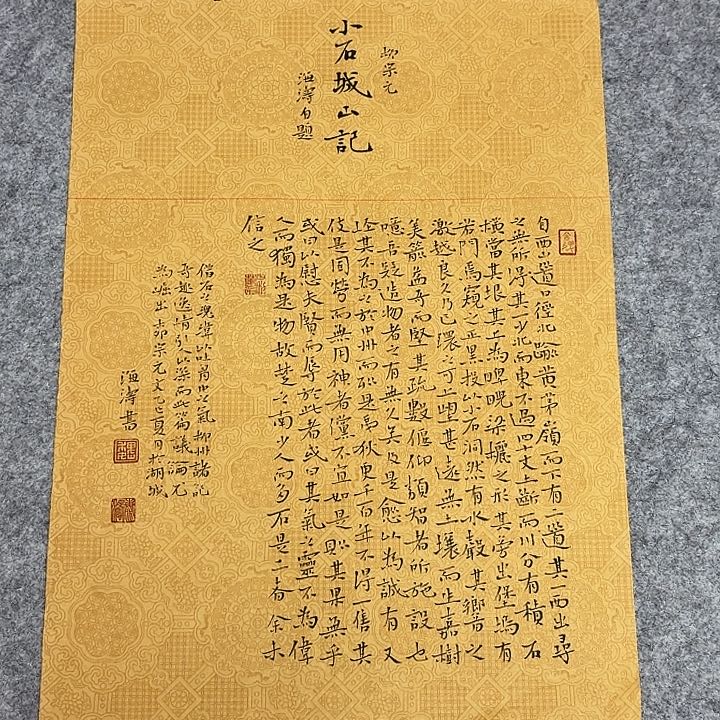 小石城山記
柳宗元
海濤自題
自西山道口徑北踰黄茅嶺而下有二道其一西出尋
之無所得其一少北而東不過四十丈土斷而川分有積石
橫當其垠其上為睥睨梁欐之形其旁出堡塢有
若門焉窺之正黑投以小石洞然有水聲其響之
激越良久乃已環之可上望甚遠無土壤而生嘉樹
美箭益奇而堅其疏數偃仰類智者所施設也
噫吾疑造物者之有無久矣及是愈以為誠有又
怪其不為之於中州而列是夷狄更千百年不得一售其
伎是固勞而無用神者儻不宜如是則其果無乎
或曰以慰夫賢而辱於此者或曰其氣之靈不為偉
人而獨為是物故楚之南少人而多石是二者余未
信之
借石之瑰瑋以吐胸中之氣柳州諸記
奇趣逸情引人以深而此篇議論尤
為崛出 柳宗元文乙巳夏月於湖城
海濤書